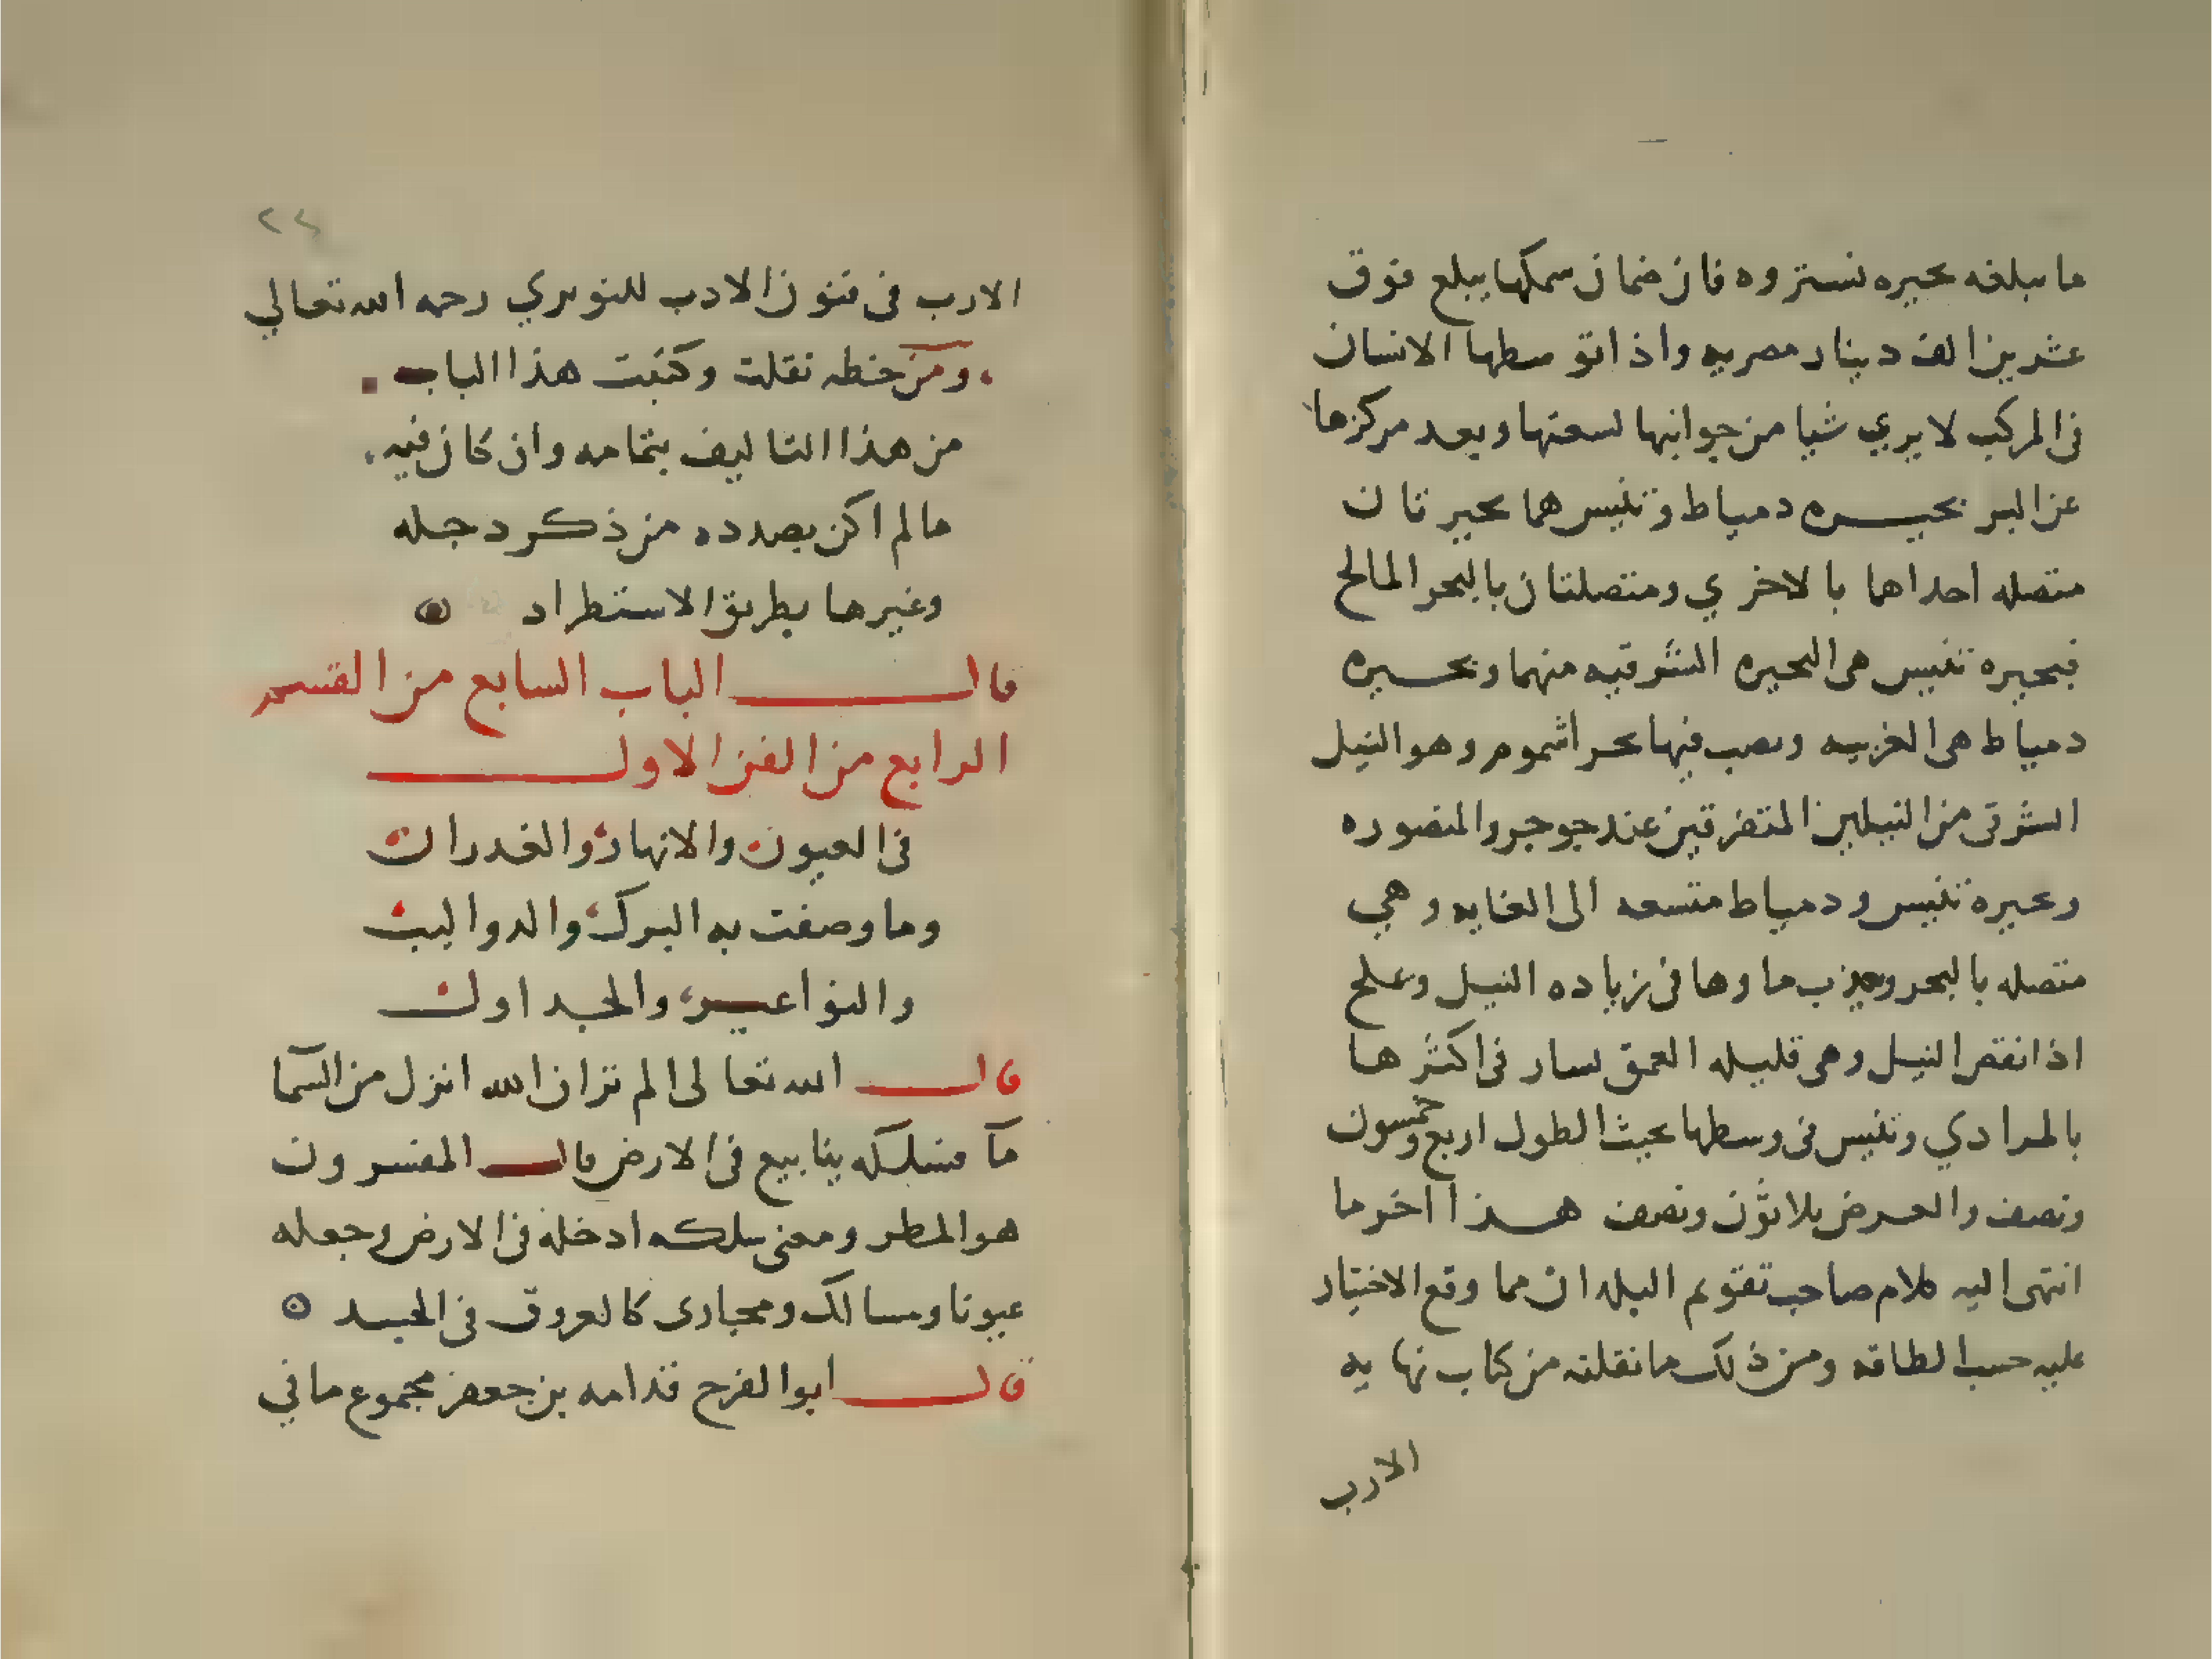 ما يبلغه بحيره نستروه فان ضمان سمكها يبلغ فوق
عشرين الف دينار مصريه واذا توسطها الانسان
في المركب لا يري شيا من جوانبها لسعتها وبعد مركزها
عن البر بحيره دمياط وتنيس هما بحيرتان
متصله احداهما بالاخري ومتصلتان بالبحر المالح
فبحيره تنيس هي البحيره الشرقيه منهما وبحيره
دمياط هي الغربيه ويصب فيها بحر اشموم وهو النيل
الشرقي من النيلين المتفرقين عند جوجر والمنصوره
وبحيره تنيس ودمياط متسعه الى الغايه وهي
متصله بالبحر ويعذب ماوها في زياده النيل ويملح
اذا نقص النيل وهي قليله العمق يسار في اكثرها
بالمرادي وتنيس في وسطها بحيث الطول اربع وخمسون
ونصف والعرض ثلاثون ونصف هذا اخر ما
انتهى اليه كلام صاحب تقويم البلدان مما وقع الاختيار
عليه حسب الطاقه ومن ذلك ما نقلته من كتاب نهايه
الارب
٢٤
الارب في فنون الادب للنويري رحمه الله تعالي
ومن خطه نقلت وكتبت هذا الباب
من هذا التاليف بتمامه وان كان فيه
ما لم اكن بصدده من ذكر دجله
وغيرها بطريق الاستطراد
قال الباب السابع من القسم
الرابع من الفن الاول
في العيون والانهار والغدران
وما وصفت به البرك والدواليب
والنواعير والجداول
قال الله تعالى الم تر ان الله انزل من السما
مآ فسلكه ينابيع في الارض قال المفسرون
هو المطر ومعنى سلكه ادخله في الارض وجعله
عيونا ومسالك ومجارى كالعروق في الجسد
قال ابو الفرج قدامه بن جعفر مجموع ما في